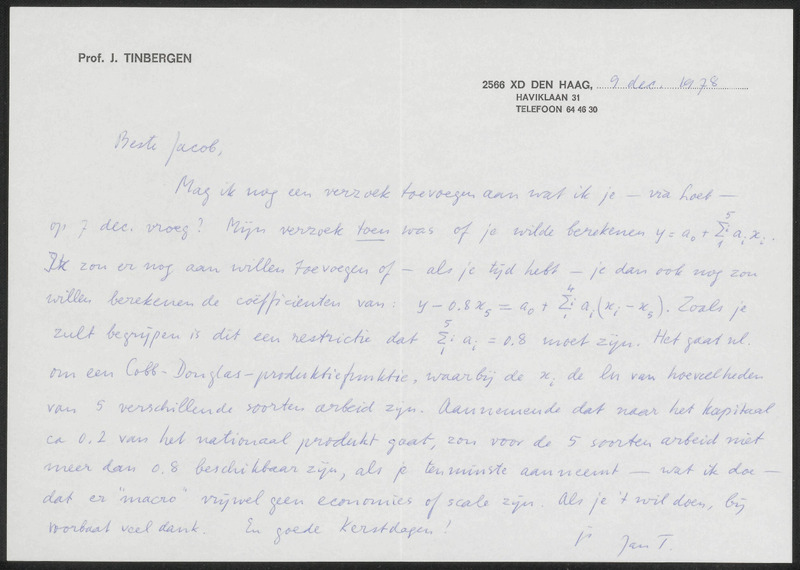 Prof. J. TINBERGEN
2566 XD DEN HAAG, 9 dec. 1978
HAVIKLAAN 31
TELEFOON 64 46 30
Beste Jacob,
Mag ik nog een verzoek toevoegen aan wat ik je — via Loet —
op 7 dec. vroeg? Mijn verzoek toen was of je wilde berekenen y = a₀ + Σ₁⁵ᵢ aᵢ xᵢ.
Ik zou er nog aan willen toevoegen of — als je tijd hebt — je dan ook nog zou
willen berekenen de coëfficienten van: y – 0.8 x₅ = a₀ + Σ₁⁴ᵢ aᵢ (xᵢ – x₅). Zoals je
zult begrijpen is dit een restrictie dat Σ₁⁵ᵢ aᵢ = 0.8 moet zijn. Het gaat nl.
om een Cobb-Douglas-produktiefunktie, waarbij de xᵢ de ln van hoeveelheden
van 5 verschillende soorten arbeid zijn. Aannemende dat naar het kapitaal
ca 0.2 van het nationaal produkt gaat, zou voor de 5 soorten arbeid niet
meer dan 0.8 beschikbaar zijn, als je tenminste aanneemt — wat ik doe —
dat er "macro" vrijwel geen economies of scale zijn. Als je 't wil doen, bij
voorbaat veel dank. En goede Kerstdagen!
je Jan T.